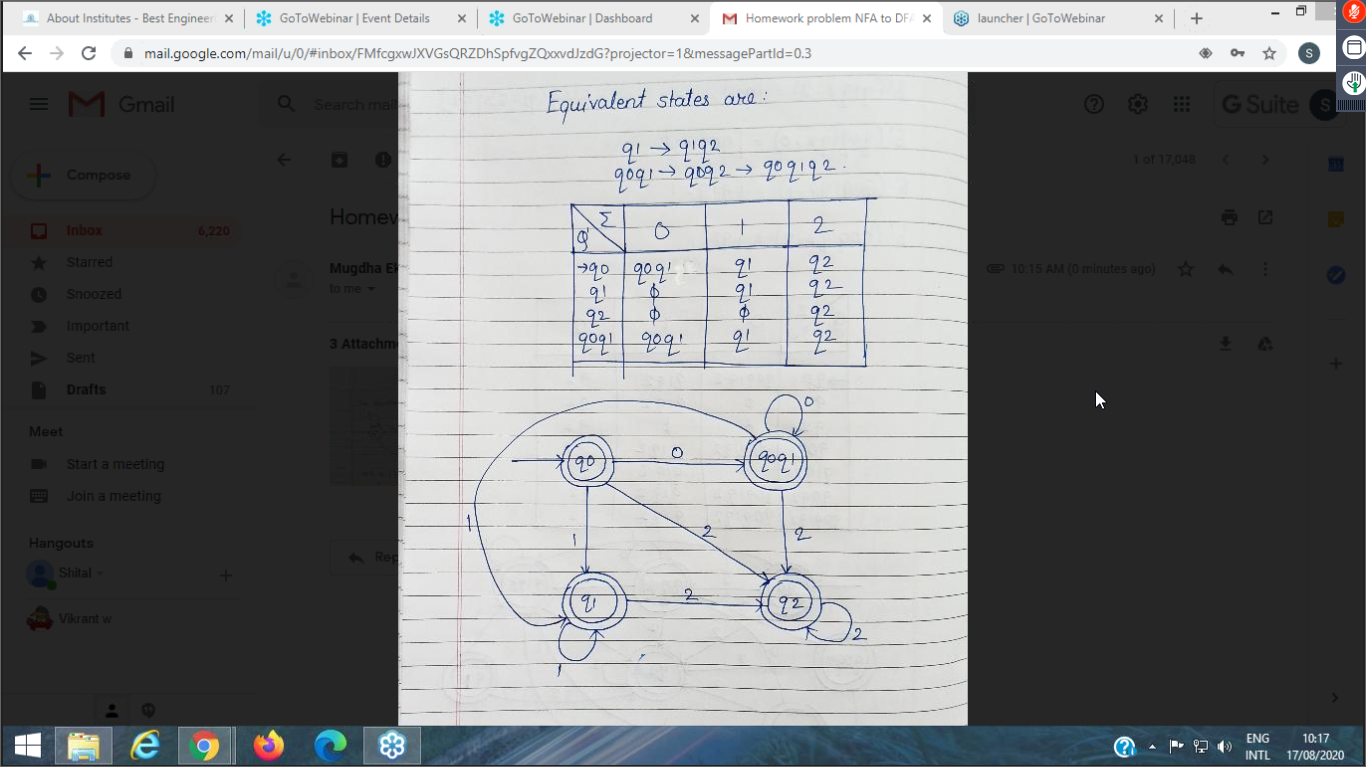 About Institutes - Best Engineer
GoToWebinar | Event Details
GoToWebinar | Dashboard
Homework problem NFA to DFA
launcher | GoToWebinar
mail.google.com/mail/u/0/#inbox/FMfcgxwJXVGsQRZDhSpfvgZQxxvdJzdG?projector=1&messagePartId=0.3
S
Gmail
Search mail
G Suite
S
Compose
1 of 17,048
Inbox 6,220
Starred
Snoozed
Important
Sent
Drafts 107
Meet
Start a meeting
Join a meeting
Hangouts
Shital
Vikrant w
Homew
Mugdha
10:15 AM (0 minutes ago)
to me
3 Attachm
Rep
Equivalent states are:
q1 → q1q2
q0q1 → q0q2 → q0q1q2.
Σ
Q' 0 1 2
→q0 q0q1 q1 q2
q1 ϕ q1 q2
q2 ϕ ϕ q2
q0q1 q0q1 q1 q2
0
q0 0 q0q1
1 1 2 2
q1 2 q2
1 2
ENG 10:17
INTL 17/08/2020